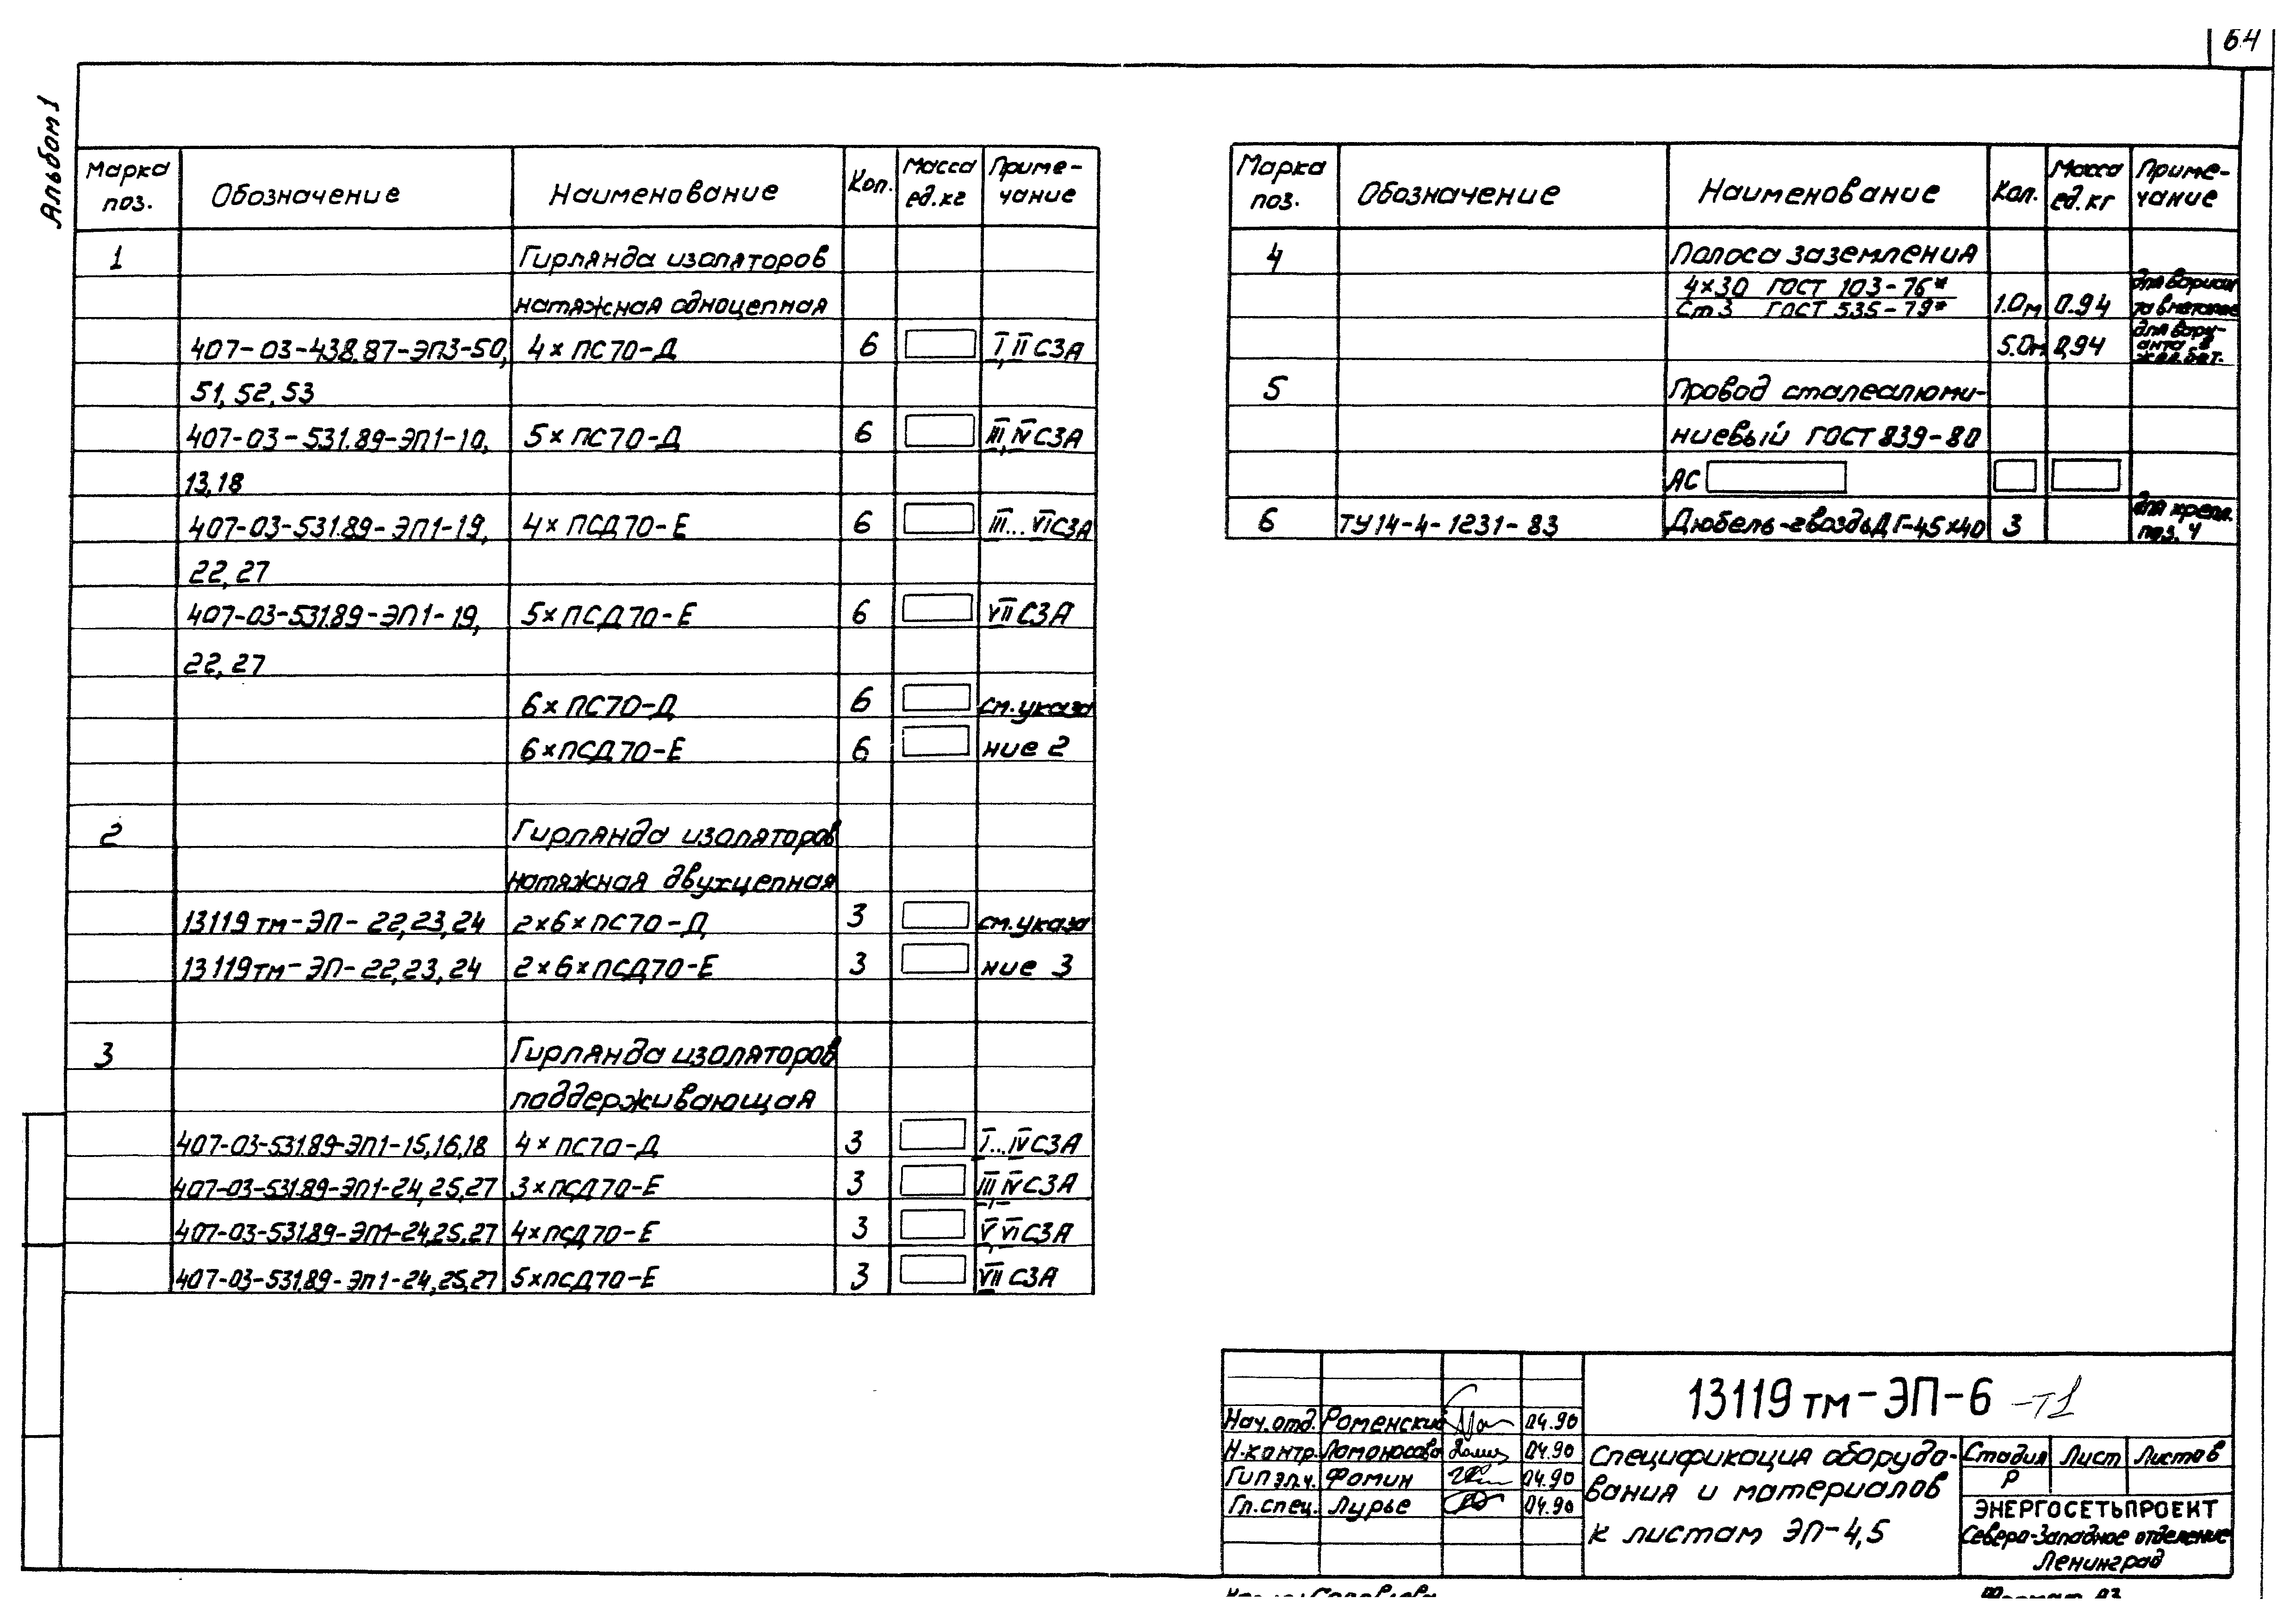 64
Альбом 1
Марка поз. Обозначение Наименование Кол. Масса ед. кг Приме-чание
1 Гирлянда изоляторов
натяжная одноцепная
407-03-438.87-ЭП3-50, 4×ПС70-Д 6 I, II СЗА
51, 52, 53
407-03-531.89-ЭП1-10, 5×ПС70-Д 6 III, IV СЗА
13,18
407-03-531.89-ЭП1-19, 4×ПСД70-Е 6 III... VI СЗА
22, 27
407-03-531.89-ЭП1-19, 5×ПСД70-Е 6 VII СЗА
22, 27
6×ПС70-Д 6 см. указа
6×ПСД70-Е 6 ние 2
2 Гирлянда изоляторов
натяжная двухцепная
13119тм-ЭП-22,23,24 2×6×ПС70-Д 3 см. указа
13119тм-ЭП-22,23,24 2×6×ПСД70-Е 3 ние 3
3 Гирлянда изоляторов
поддерживающая
407-03-531.89-ЭП1-15,16,18 4×ПС70-Д 3 I...IV СЗА
407-03-531.89-ЭП1-24,25,27 3×ПСД70-Е 3 III, IV СЗА
407-03-531.89-ЭП1-24,25,27 4×ПСД70-Е 3 V, VI СЗА
407-03-531.89-ЭП1-24,25,27 5×ПСД70-Е 3 VII СЗА
Марка поз. Обозначение Наименование Кол. Масса ед. кг Приме-чание
4 Полоса заземления
4×30 ГОСТ 103-76*
Ст3 ГОСТ 535-79* 1.0м 0.94
5.0м 0,94
5 Провод сталеалюми-
ниевый ГОСТ 839-80
АС
6 ТУ14-4-1231-83 Дюбель-гвоздь ДГ-4,5×40 3 для крепл. поз. 4
13119тм-ЭП-6 -Т1
Нач.отд. Роменский 04.90
Н.контр. Ломоносова 04.90
ГИП эл.ч. Фомин 04.90
Гл.спец. Лурье 04.90
Спецификация оборудо-
вания и материалов
к листам ЭП-4,5
Стадия Лист Листов
Р
ЭНЕРГОСЕТЬПРОЕКТ
Северо-Западное отделение
Ленинград